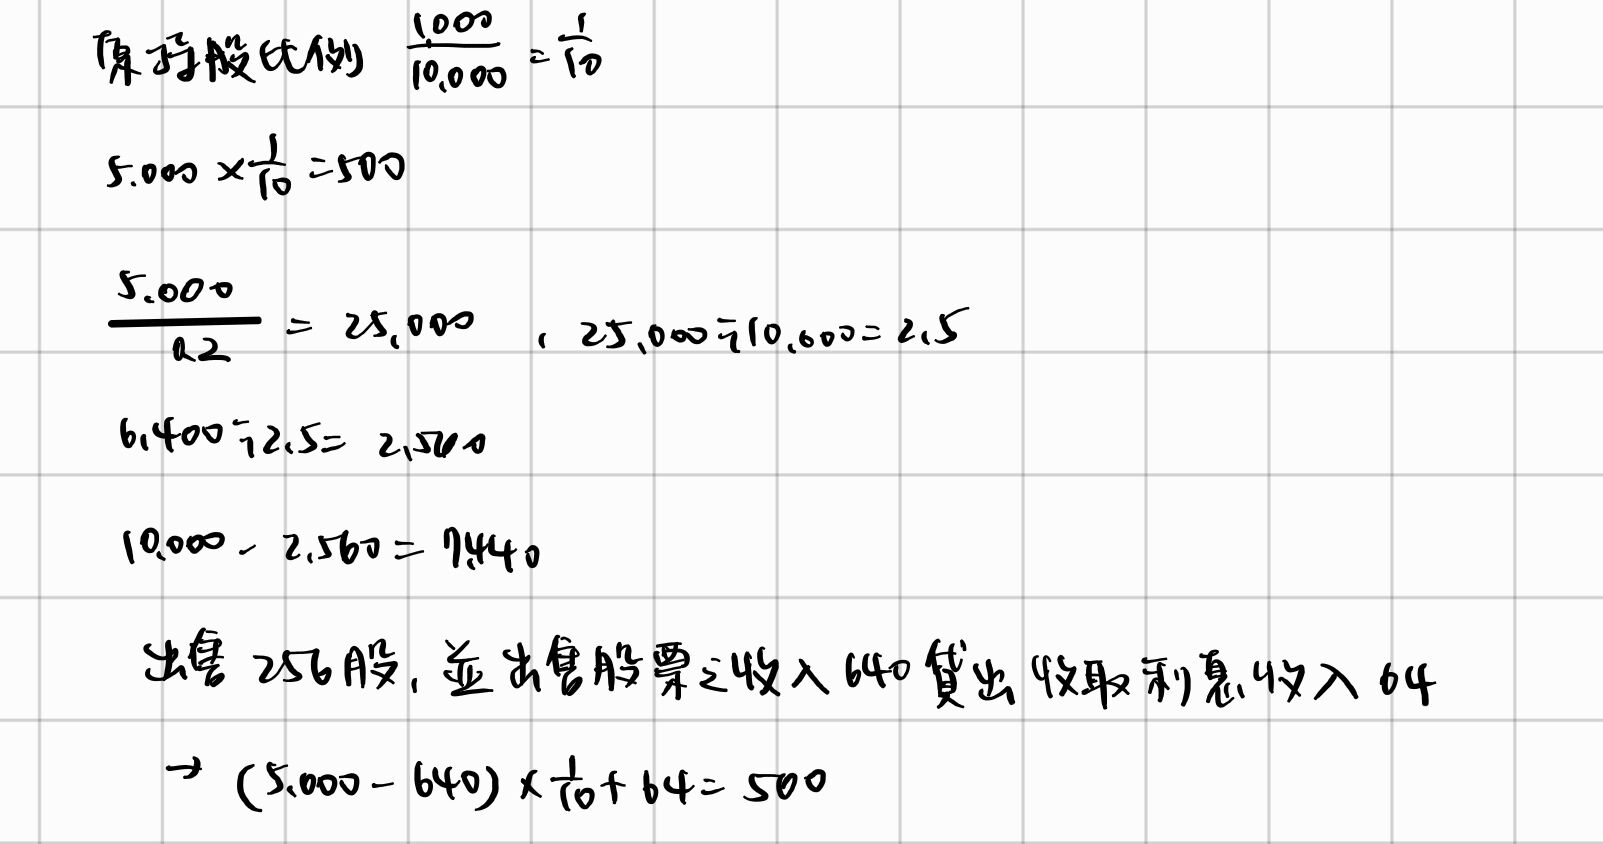 原持股比例 1,000/10,000 = 1/10
5,000 × 1/10 = 500
5,000/0.2 = 25,000 , 25,000÷10,000=2.5
6,400÷2.5= 2,560
10,000 - 2,560 = 7,440
出售 256股, 並出售股票之收入 640 貸出收取利息收入 64
→ (5,000 - 640) × 1/10 + 64 = 500